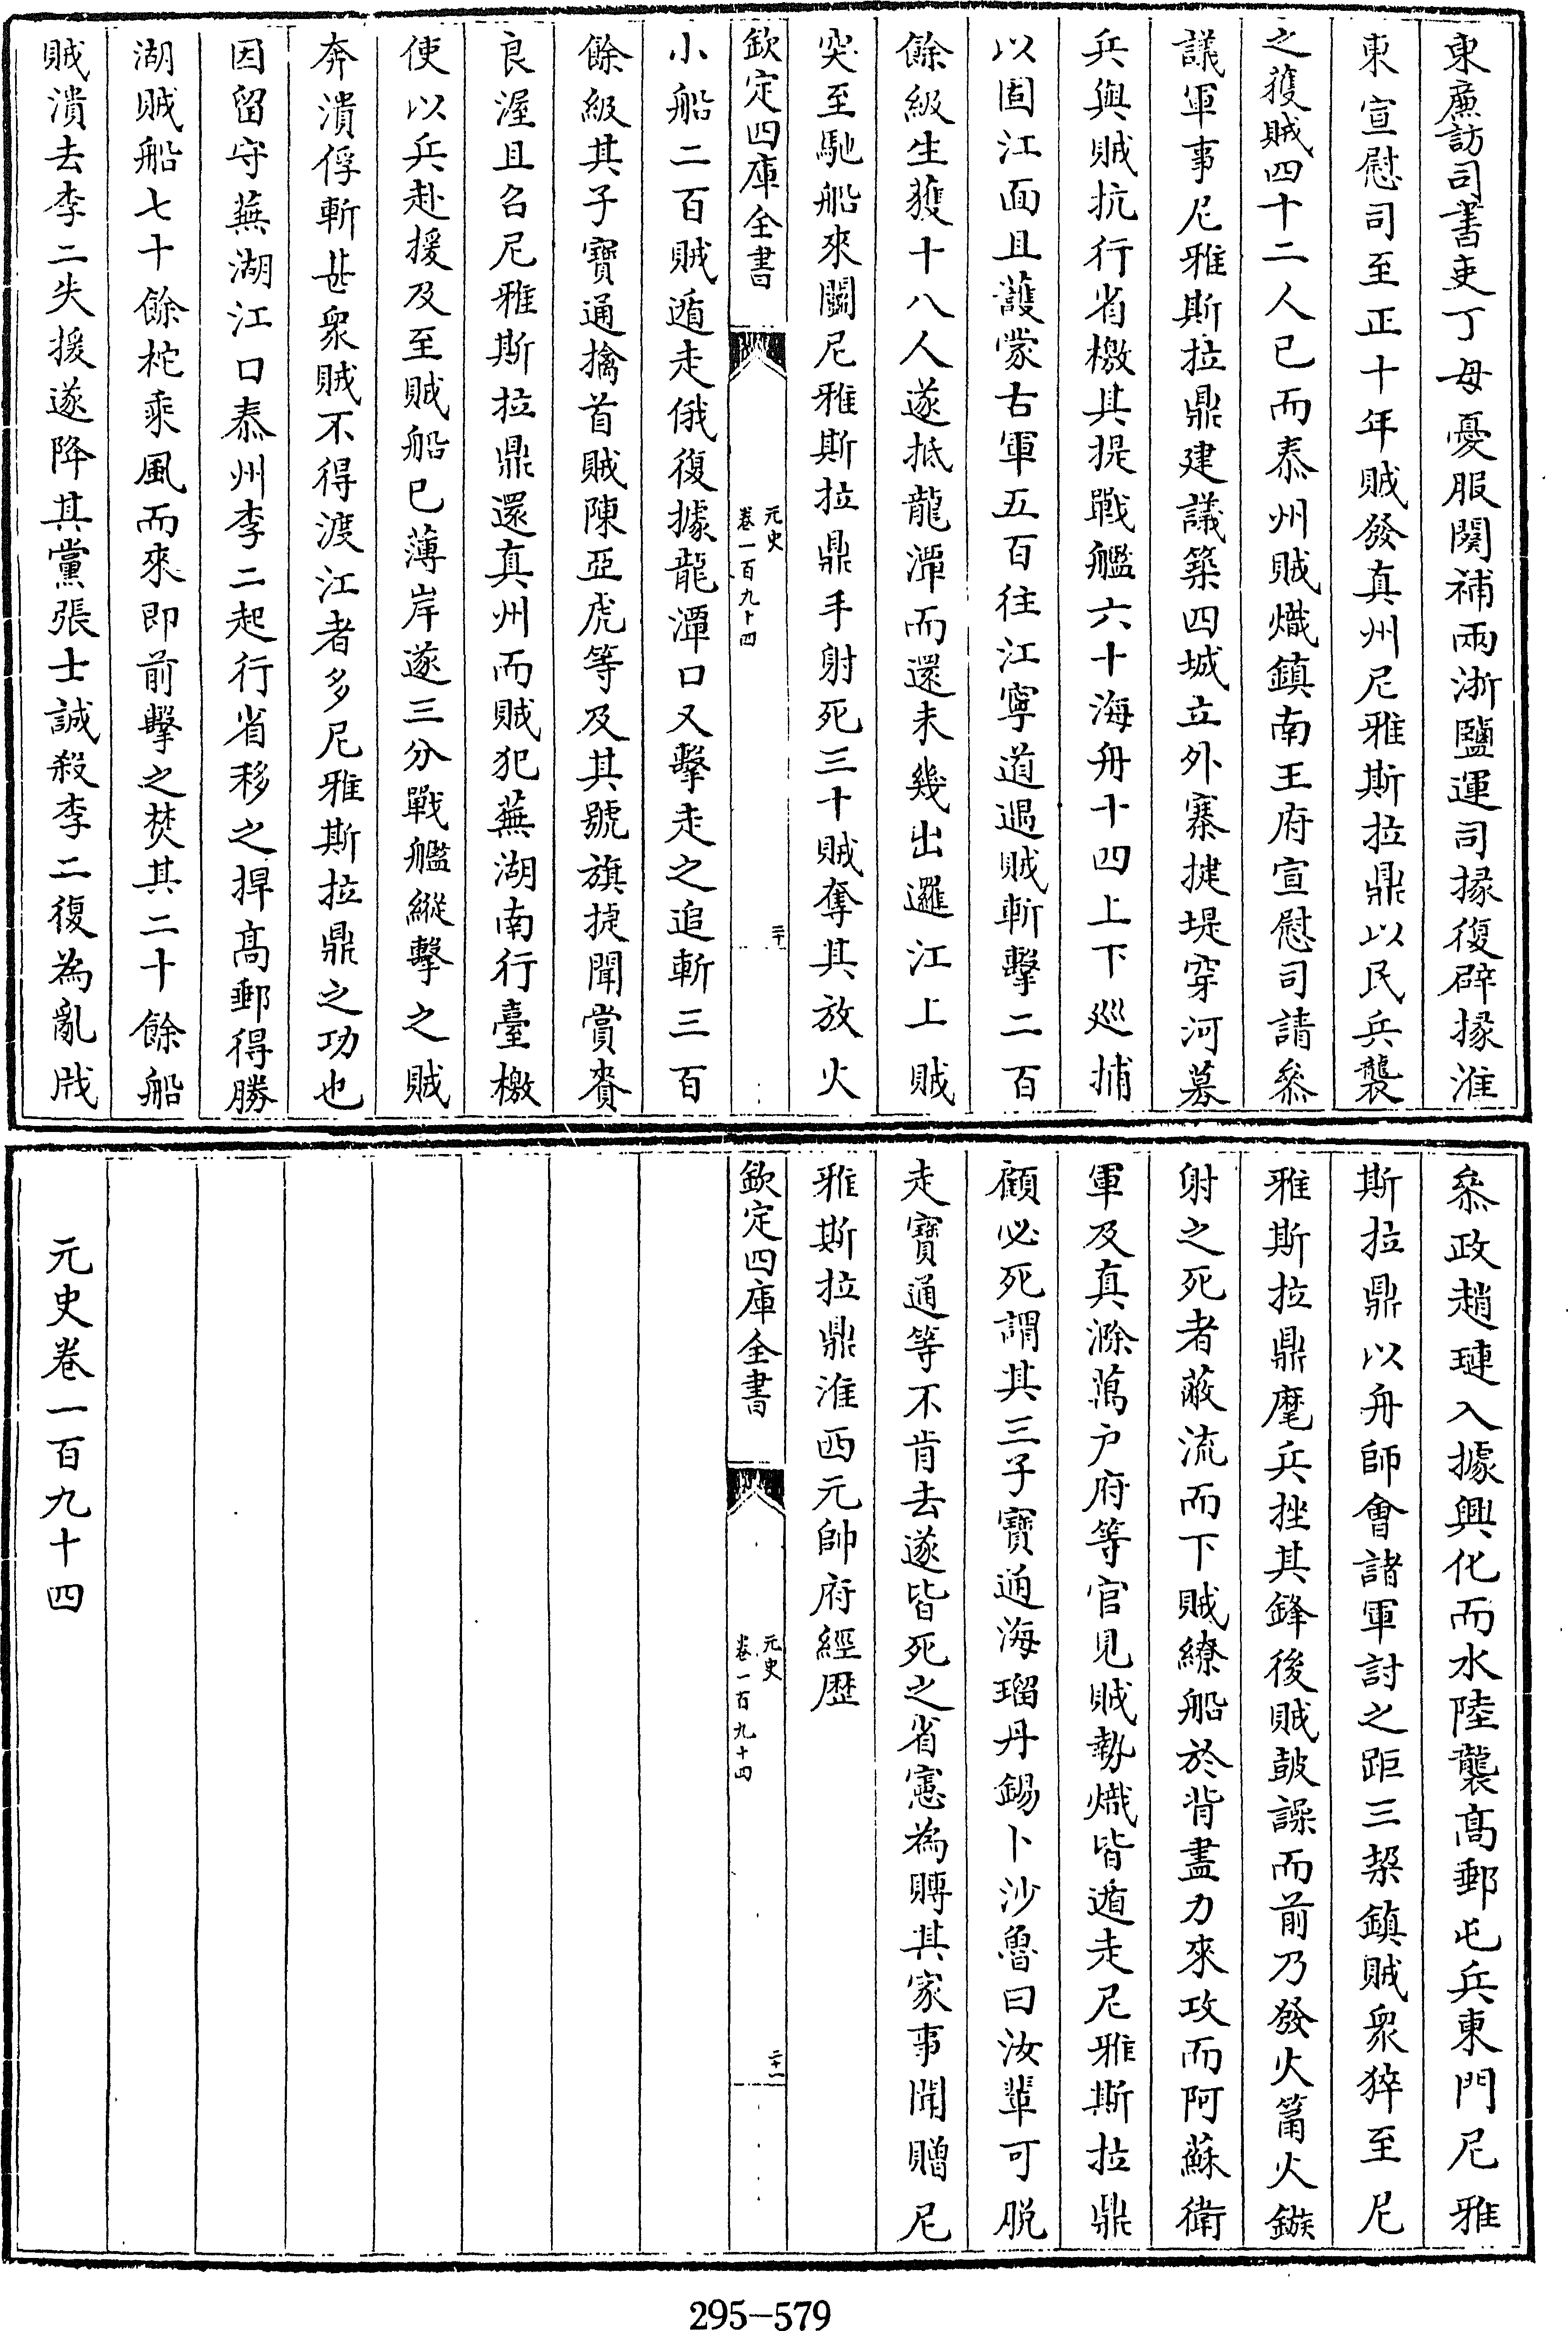 東廉訪司書吏丁母憂服闋補兩浙鹽運司掾復辟掾淮
東宣慰司至正十年賊發真州尼雅斯拉鼎以民兵襲
之獲賊四十二人已而泰州賊熾鎮南王府宣慰司請叅
議軍事尼雅斯拉鼎建議築四城立外寨揵堤穿河募
兵與賊抗行省檄其提戰艦六十海舟十四上下廵捕
以固江面且護蒙古軍五百往江寧道遇賊斬擊二百
餘級生獲十八人遂抵龍潭而還未幾出邏江上賊
突至馳船來鬭尼雅斯拉鼎手射死三十賊奪其放火
欽定四庫全書
元史
卷一百九十四
三十
小船二百賊遁走俄復據龍潭口又擊走之追斬三百
餘級其子寶通擒首賊陳亞虎等及其號旗捷聞賞賚
良渥且召尼雅斯拉鼎還真州而賊犯蕪湖南行臺檄
使以兵赴援及至賊船已薄岸遂三分戰艦縱擊之賊
奔潰俘斬甚衆賊不得渡江者多尼雅斯拉鼎之功也
因留守蕪湖江口泰州李二起行省移之捍高郵得勝
湖賊船七十餘柁乘風而來即前擊之焚其二十餘船
賊潰去李二失援遂降其黨張士誠殺李二復為亂戕
叅政趙璉入據興化而水陸襲高郵屯兵東門尼雅
斯拉鼎以舟師會諸軍討之距三垛鎮賊衆猝至尼
雅斯拉鼎麾兵挫其鋒後賊鼓譟而前乃發火箭火鏃
射之死者蔽流而下賊繚船於背盡力來攻而阿蘇衛
軍及真滁萬户府等官見賊勢熾皆遁走尼雅斯拉鼎
顧必死謂其三子寶通海瑠丹錫卜沙魯曰汝輩可脱
走寶通等不肯去遂皆死之省憲為賻其家事聞贈尼
雅斯拉鼎淮西元帥府經歴
欽定四庫全書
元史
卷一百九十四
三十一
元史卷一百九十四
295-579